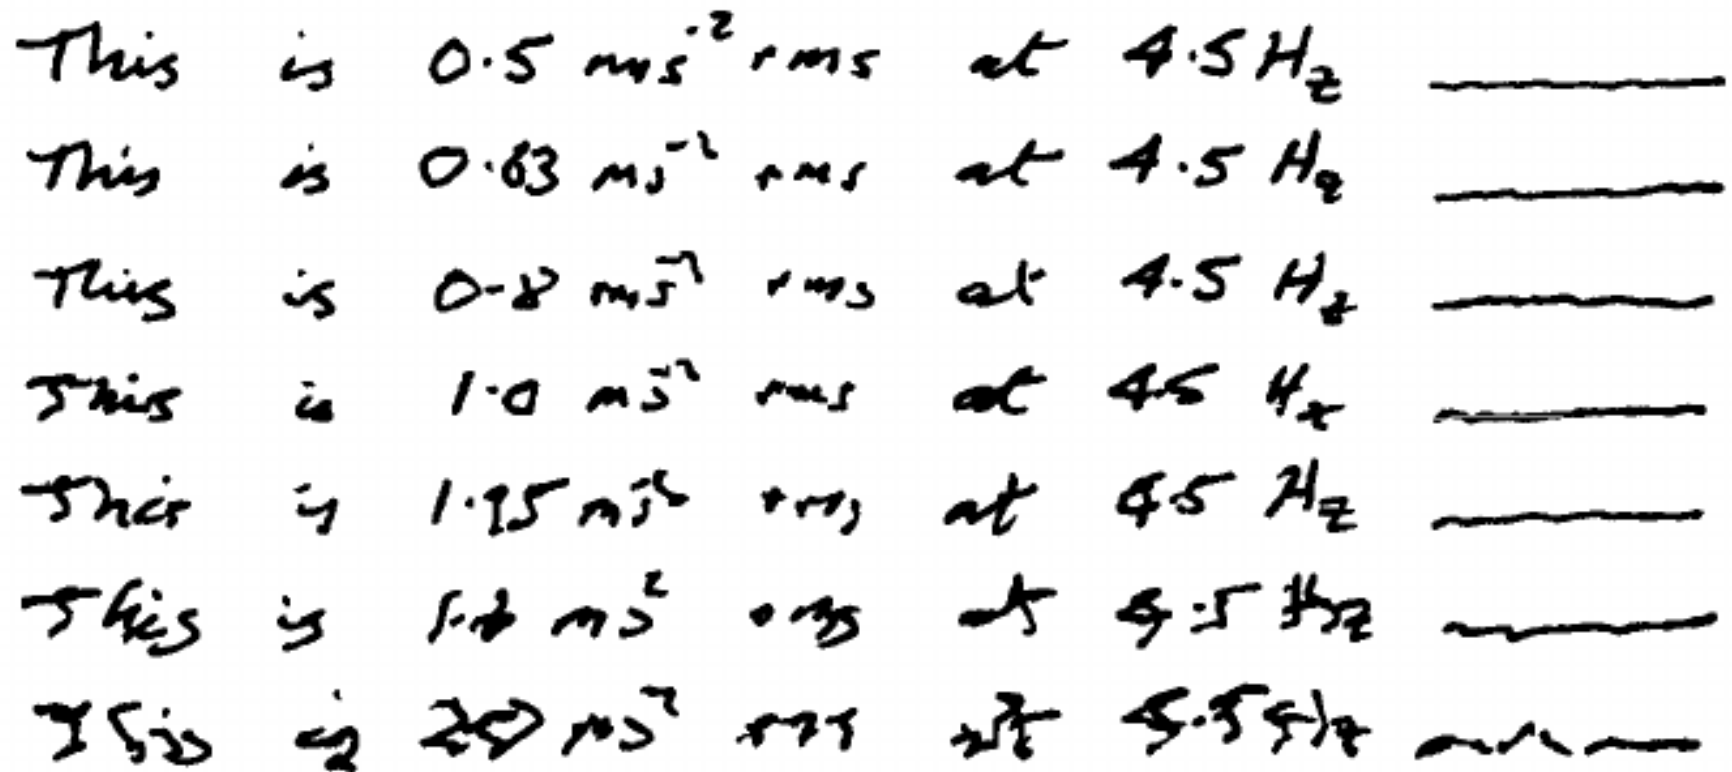 This is 0.5 ms⁻² rms at 4.5 Hz
This is 0.63 ms⁻² rms at 4.5 Hz
This is 0.8 ms⁻² rms at 4.5 Hz
This is 1.0 ms⁻² rms at 4.5 Hz
This is 1.25 ms⁻² rms at 4.5 Hz
This is ms⁻² rms at 4.5 Hz
This is 2.0 ms⁻² rms at 4.5 Hz